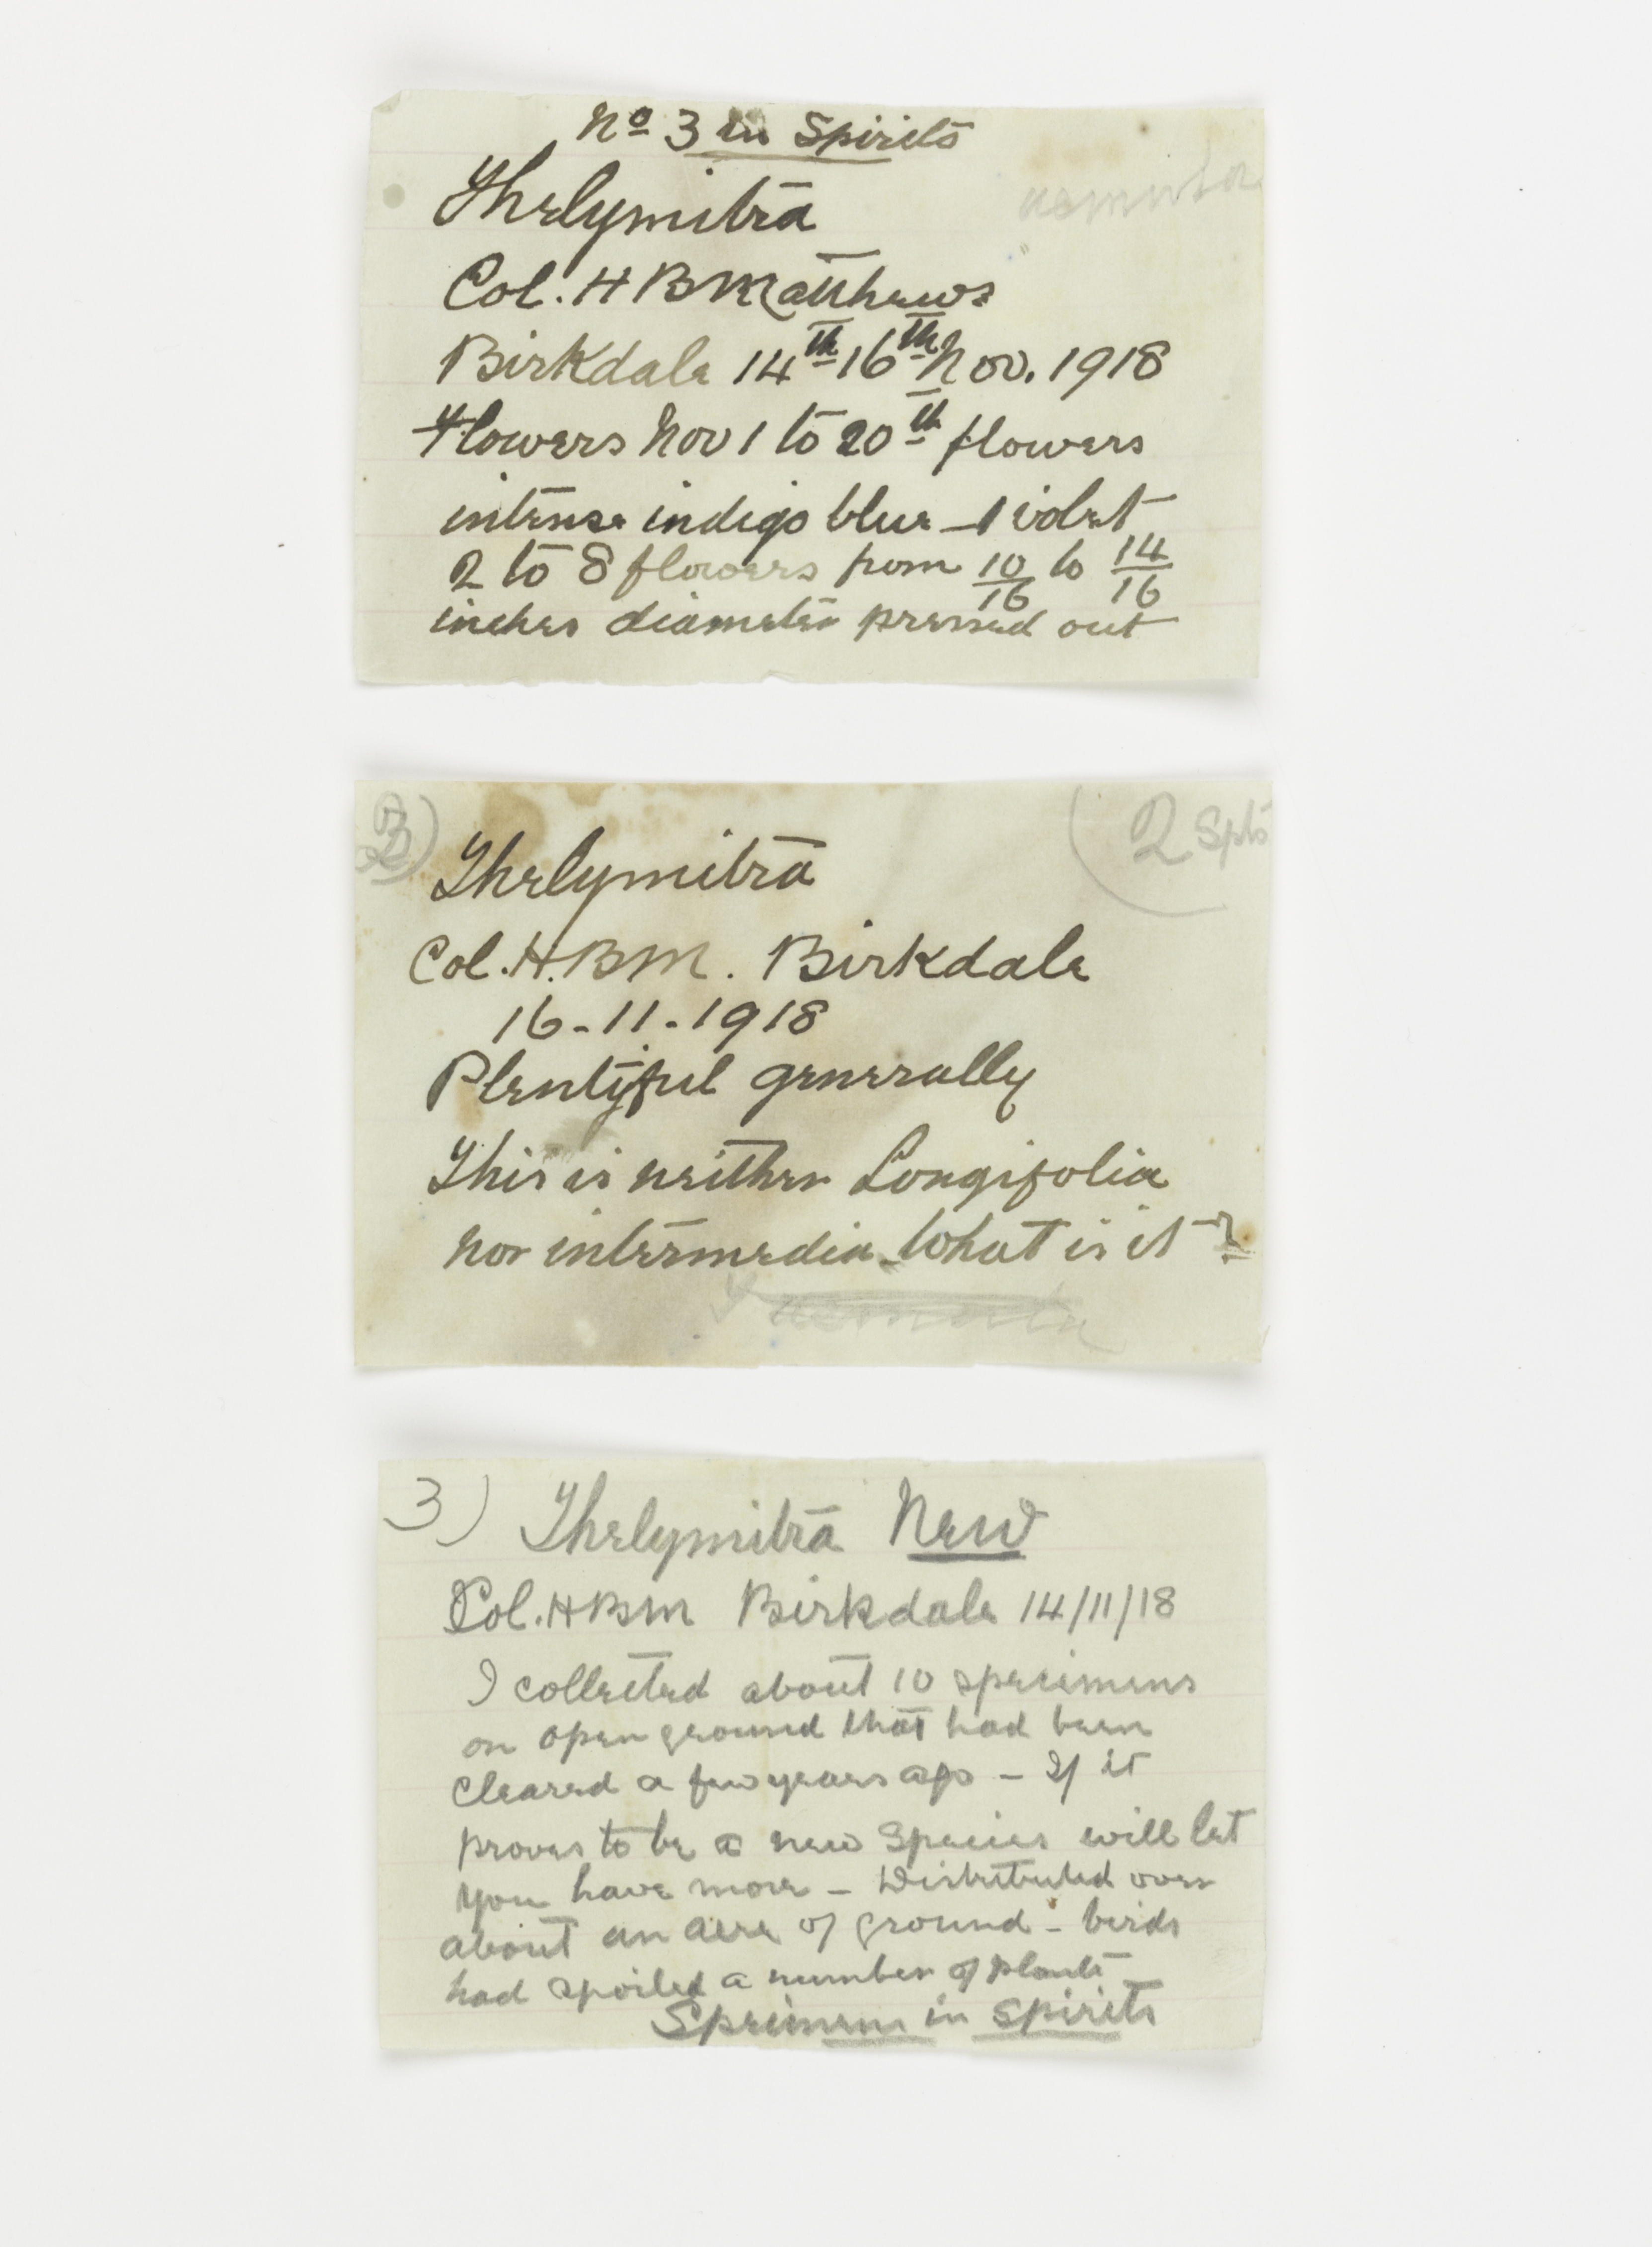 No 3 in Spirits
Thelymitra
Col. H B Matthews
Birkdale 14th 16th Nov. 1918
Flowers Nov 1 to 20th flowers
intense indigo blue - violet
2 to 8 flowers from 10/16 to 14/16
inches diameter pressed out
Thelymitra
(2 Spts
Col. H.B.M. Birkdale
16-11-1918
Plentyful generally
This is neither Longifolia
nor intermedia - What is it?
3) Thelymitra New
Col. H B M Birkdale 14/11/18
I collected about 10 specimens
on open ground that had been
cleared a few years ago - If it
proves to be a new Species will let
you have more - Distributed over
about an acre of ground - birds
had spoiled a number of plants
Specimens in spirits